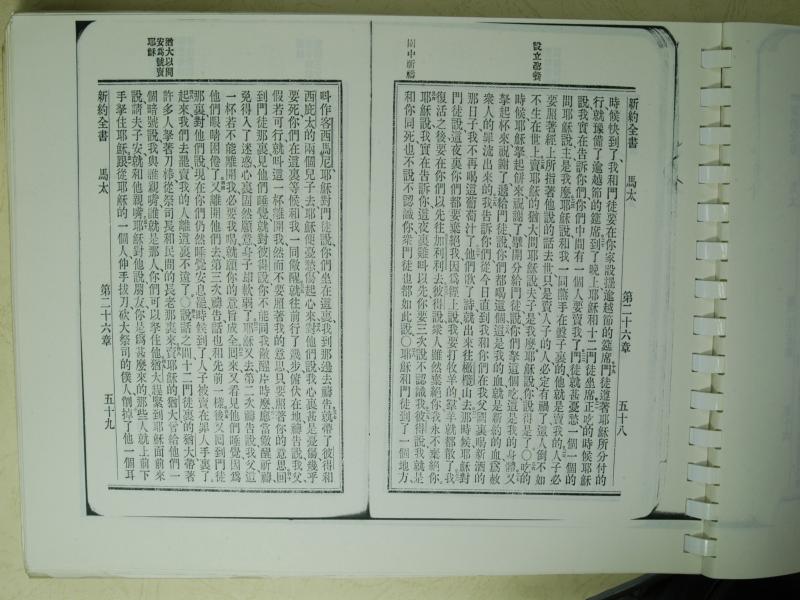 新約全書　馬太　第二十六章　五十八
設立聖餐
園中祈禱
時候快到了、我和門徒要在你家設擺逾越節的筵席、門徒遵著耶穌所分付的
行、就豫備了逾越節的筵席、到了晚上、耶穌和十二門徒坐席、正吃的時候、耶穌
說、我實在告訴你們、你們中間有一個人要賣我了、門徒就甚憂愁、一個一個的
問耶穌說、主是我麼、耶穌說、和我一同蘸手在盤子裏的、他就是賣我的、人子必
要照著經上所指著他說的話去世、只是賣人子的人必定有禍了、這人倒不如
不生在世上、賣耶穌的猶大問耶穌說、夫子是我麼、耶穌說、你說得是了、〇吃的
時候、耶穌拏起餅來、祝謝了、擘開分給門徒說、你們拏這個吃、這是我的身體、又
拏起杯來、祝謝了、遞給門徒說、你們都喝這個、這是我的血、就是新約的血、爲赦
衆人的罪流出來的、我告訴你們、從今日直到我和你們在我父國裏喝新酒的
那日子、我不再喝這葡萄汁了、他們歌了詩、就出來往橄欖山去、那時候耶穌對
門徒說、這夜裏你們都要棄絕我、因爲經上說、我要打牧羊的、羣羊就都散了、我
復活之後、要在你們以先往加利利去、彼得說、衆人雖然棄絕你、我永不棄絕你、
耶穌說、我實在告訴你、這夜裏雞叫以先、你要三次說不認識我、彼得說、我就是
和你同死、也不說不認識你、衆門徒也都如此說、〇耶穌和門徒到了一個地方、
猶大以問
安爲號賣
耶穌
叫作客西馬尼、耶穌對門徒說、你們坐在這裏、我到那邊去禱告、就帶了彼得和
西庇太的兩個兒子去、耶穌便憂愁傷起心來、對他們說、我心裏甚是憂傷、幾乎
要死、你們在這裏等候、和我一同儆醒、就往前行了幾步、俯伏在地禱告說、我父、
假若可行、就叫這一杯離開我、然而不要照著我的意思、只要照著你的意思、回
到門徒那裏、見他們睡覺、就對彼得說、你不能同我儆醒片時麼、應當儆醒祈禱、
免得入了迷惑、心裏固然願意、身子却軟弱了、耶穌又去第二次禱告說、我父、這
一杯若不能離開我、必要我喝、就願你的意旨成全、回來又看見他們睡覺、因爲
他們眼睛困倦了、又離開他們去第三次禱告、話也和先前一樣、後又回到門徒
那裏、對他們說、現在你們仍然睡覺安息罷、時候到了、人子被賣在罪人手裏了、
起來、我們去罷、賣我的人離這裏不遠了、〇說話之間、十二門徒裏的猶大帶著
許多人、拏著刀棒、從祭司長和民間的長老那裏來、賣耶穌的猶大曾給他們一
個暗號說、我與誰親嘴、誰就是那人、你們可以拏住他、猶大趕緊到耶穌面前來
說、請夫子安、就和他親嘴、耶穌對他說、朋友、你是爲甚麼來的、那些人就上前下
手拏住耶穌、跟從耶穌的一個人伸手拔刀、砍大祭司的僕人、削掉了他一個耳
新約全書　馬太　第二十六章　五十九